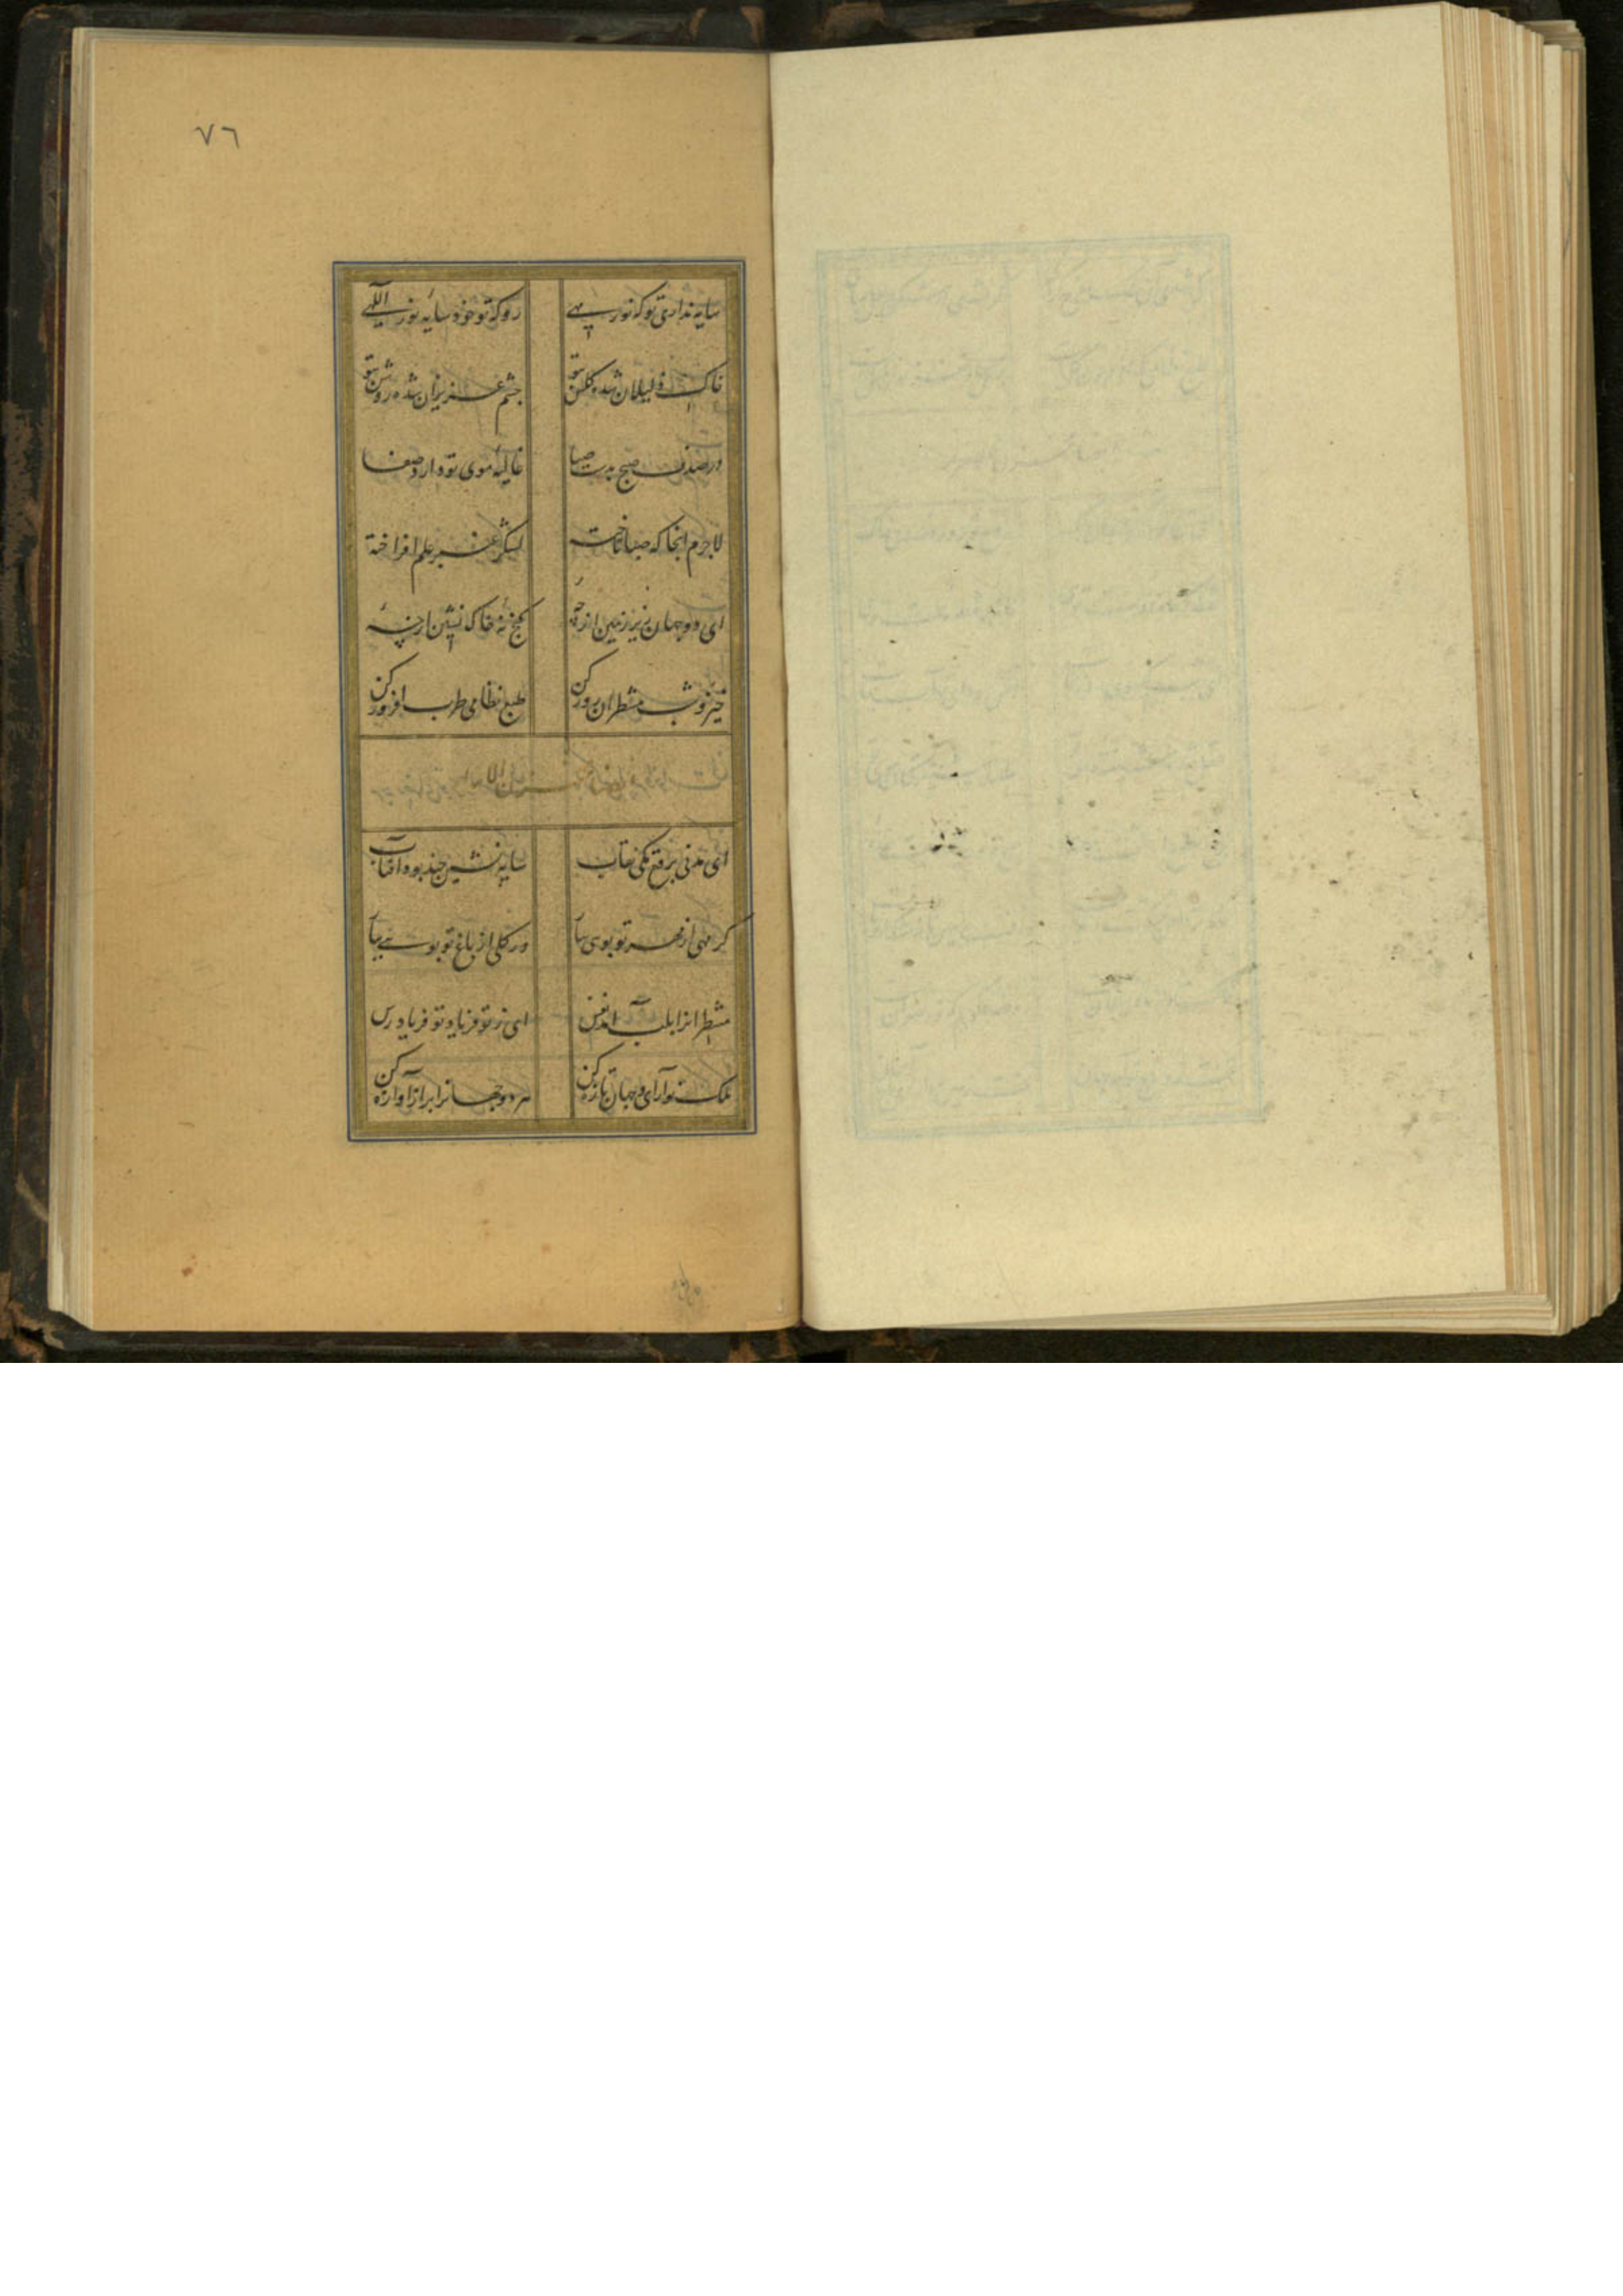 ٧٦
سایه نداری تو که نور مهی
رو که تو خود سایه نور اللهی
خاک ذلیلان شده گلشن بتو
چشم عزیزان شده روشن بتو
در صدف صبح بدست صبا
غالیه موی تو دارد صفا
لاجرم انجا که صبا تاخته
لشکر عنبر علم افراخته
ای دو جهان زیر زمین از چه
گنج نه خاک نشین از چه
خیز و شب منتظران روز کن
طبع نظامی طرب افروز کن
ای مدنی برقع مکی نقاب
سایه نشین چند بود آفتاب
گر مهی از مهر تو بوی بیار
ور گلی از باغ تو بوی بیار
منتظرانرا بلب آمد نفس
ای ز تو فریاد تو فریادرس
ملک نو آرای و جهان تازه کن
هر دو جهانرا پر از آوازه کن